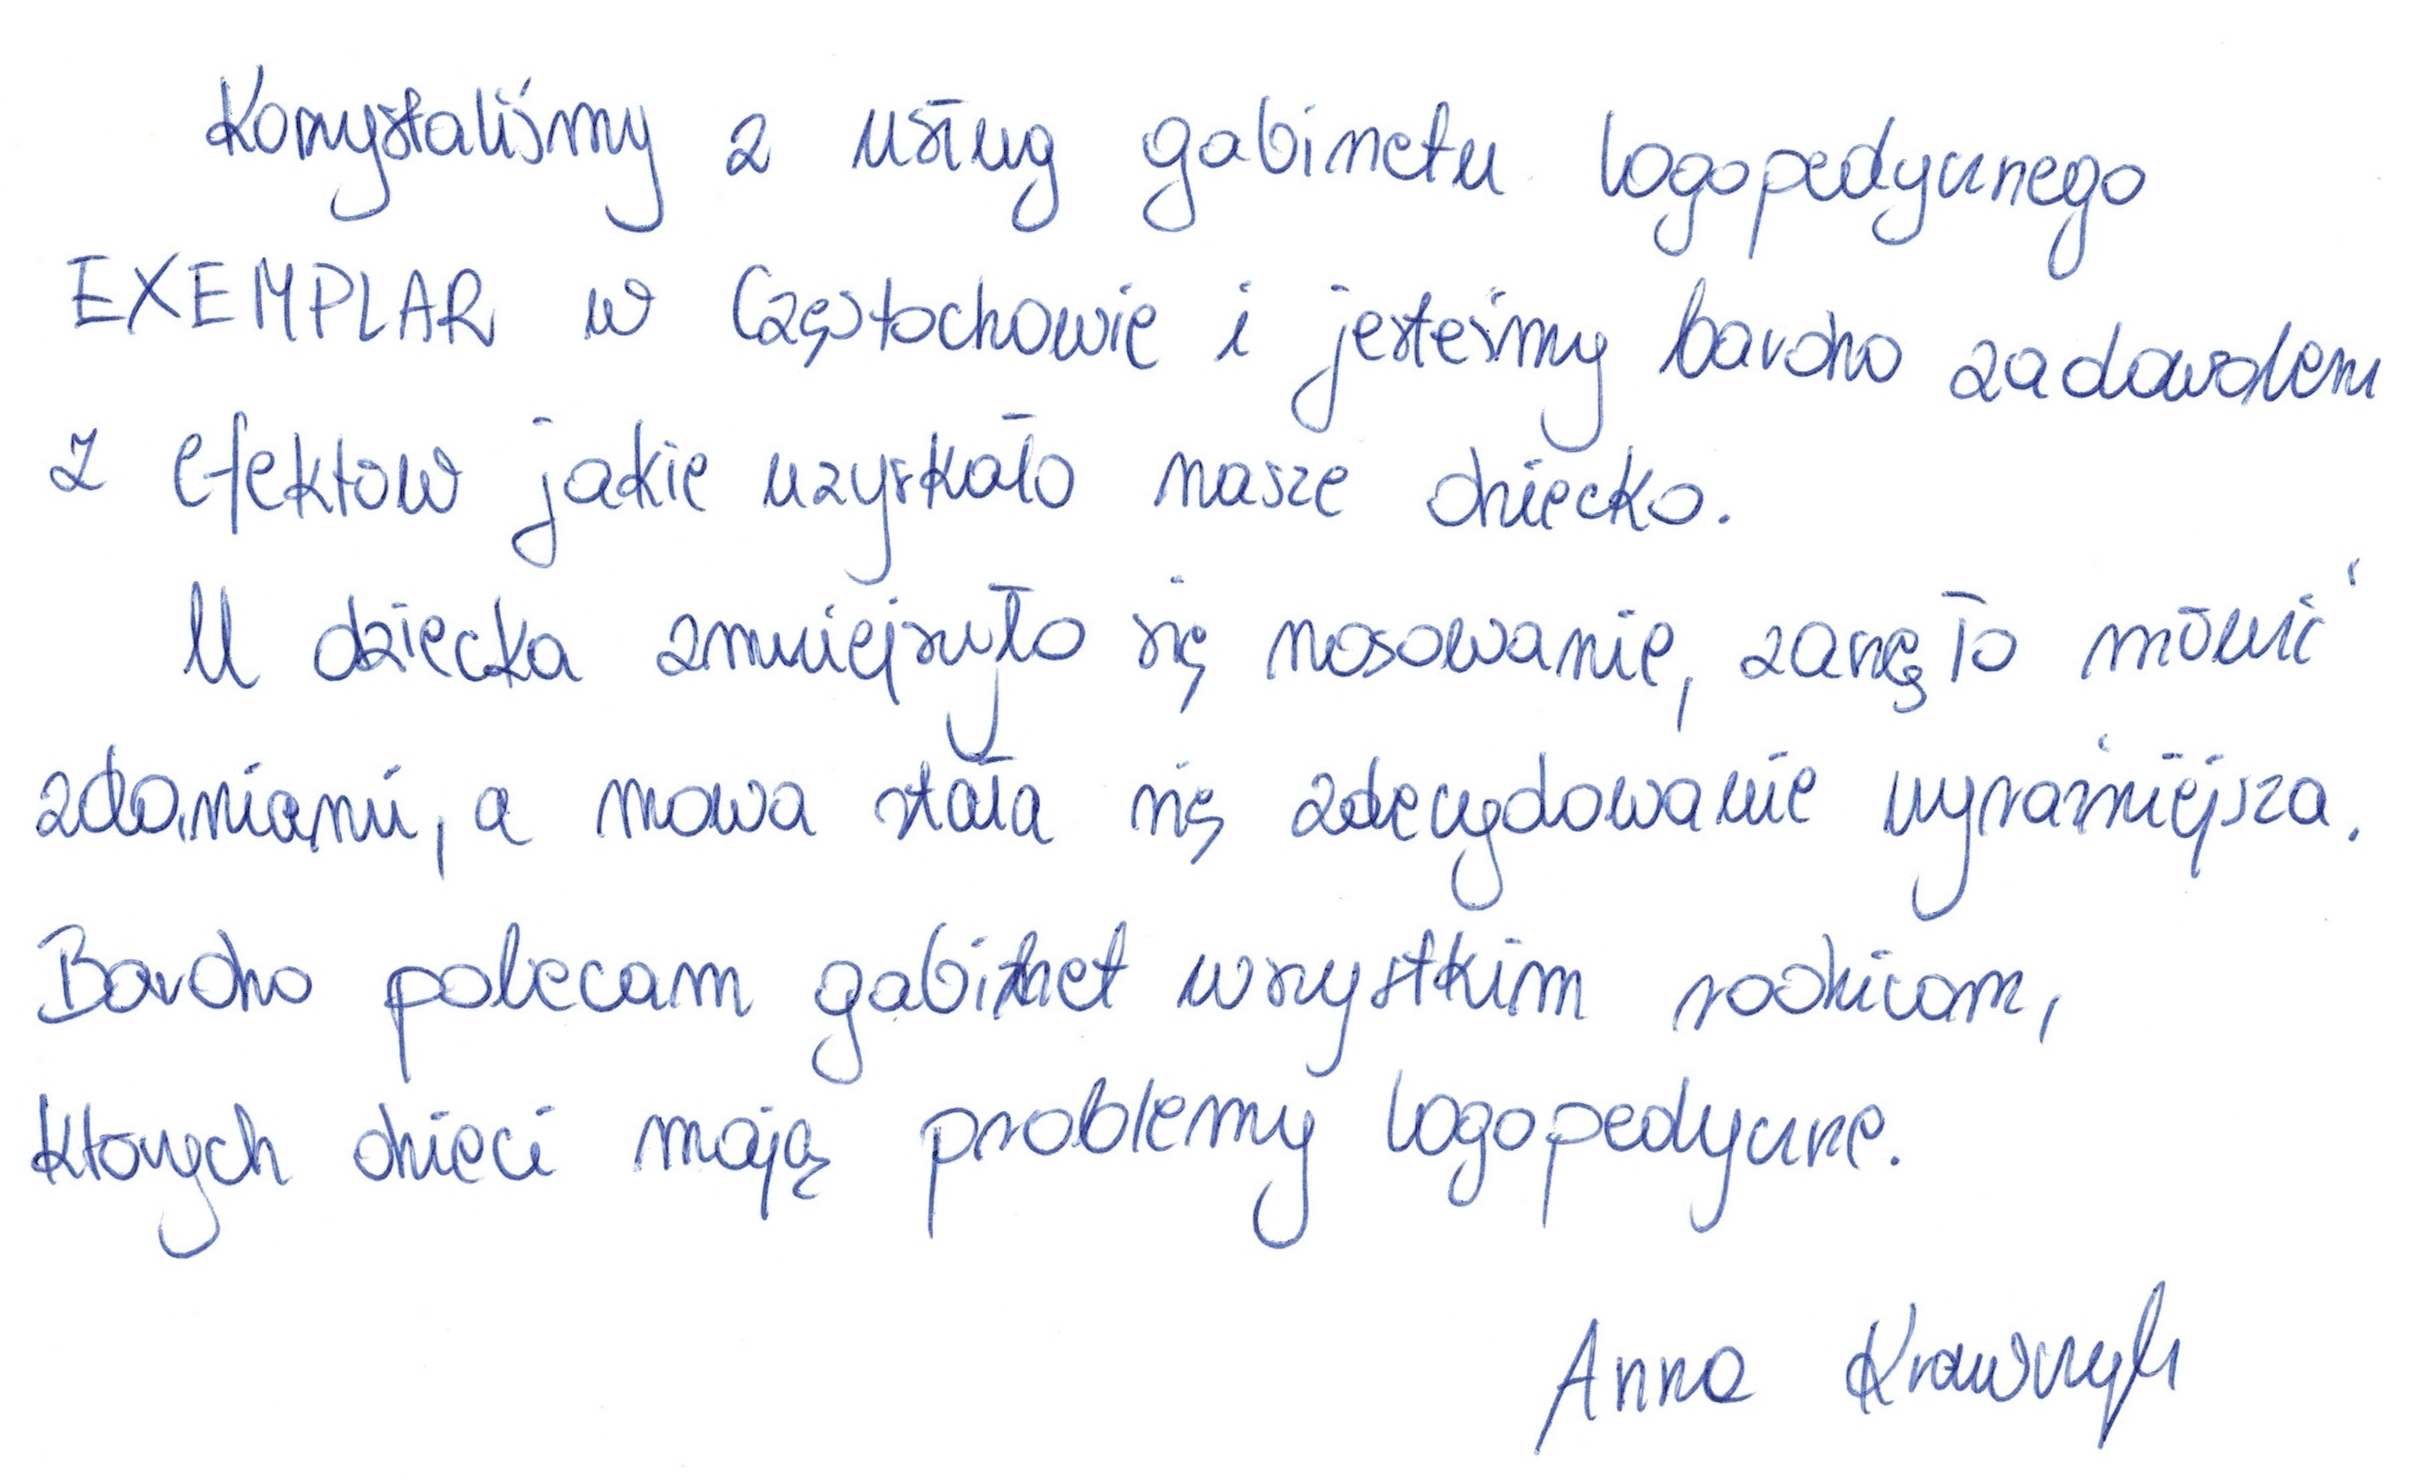 Korzystaliśmy z usług gabinetu logopedycznego
EXEMPLAR w Częstochowie i jesteśmy bardzo zadowoleni
z efektów jakie uzyskało nasze dziecko.
U dziecka zmniejszyło się nosowanie, zaczęło mówić
zdaniami, a mowa stała się zdecydowanie wyraźniejsza.
Bardzo polecam gabinet wszystkim rodzicom,
których dzieci mają problemy logopedyczne.
Anna Krawczyk